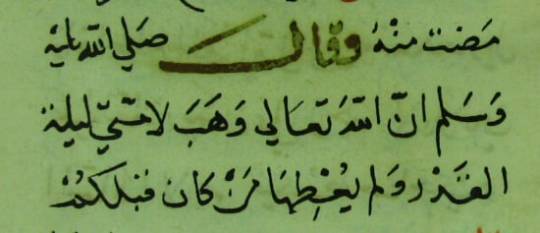 مَضت منْهُ وقال صَلي اللّه عليْه
وَسَلم انّ اللّهَ تعَالي وَهَبَ لامّتيّ ليلة
القَدْر ولم يُعْطِهَا مَنْ كان قبلكُمْ